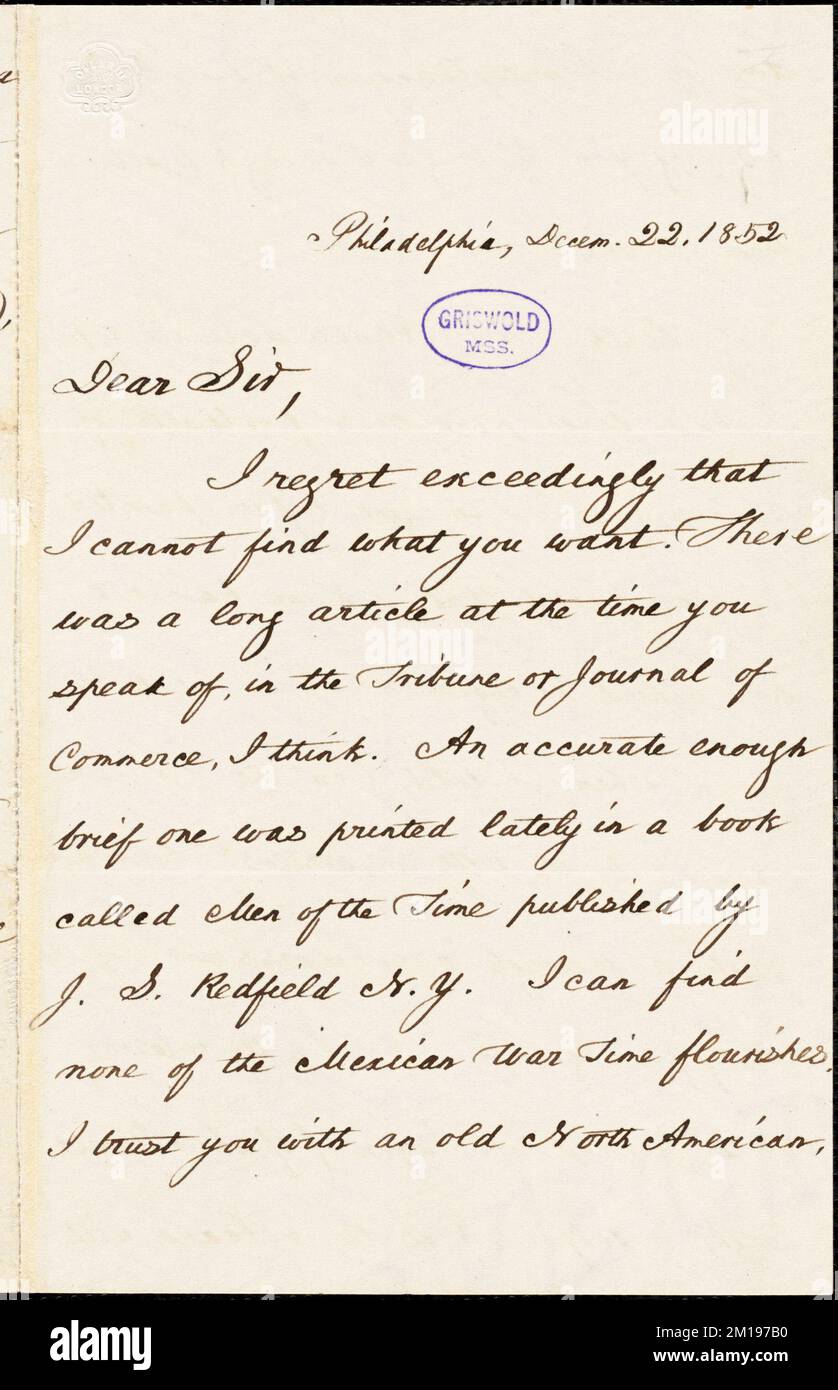 LONDON
Philadelphia, Decem. 22. 1852
GRISWOLD
MSS.
Dear Sir,
I regret exceedingly that
I cannot find what you want. There
was a long article at the time you
speak of, in the Tribune or Journal of
Commerce, I think. An accurate enough
brief one was printed lately in a book
called Men of the Time published by
J. S. Redfield N. Y. I can find
none of the Mexican War Time flourishes.
I trust you with an old North American,
alamy
alamy
Image ID: 2M197B0
www.alamy.com